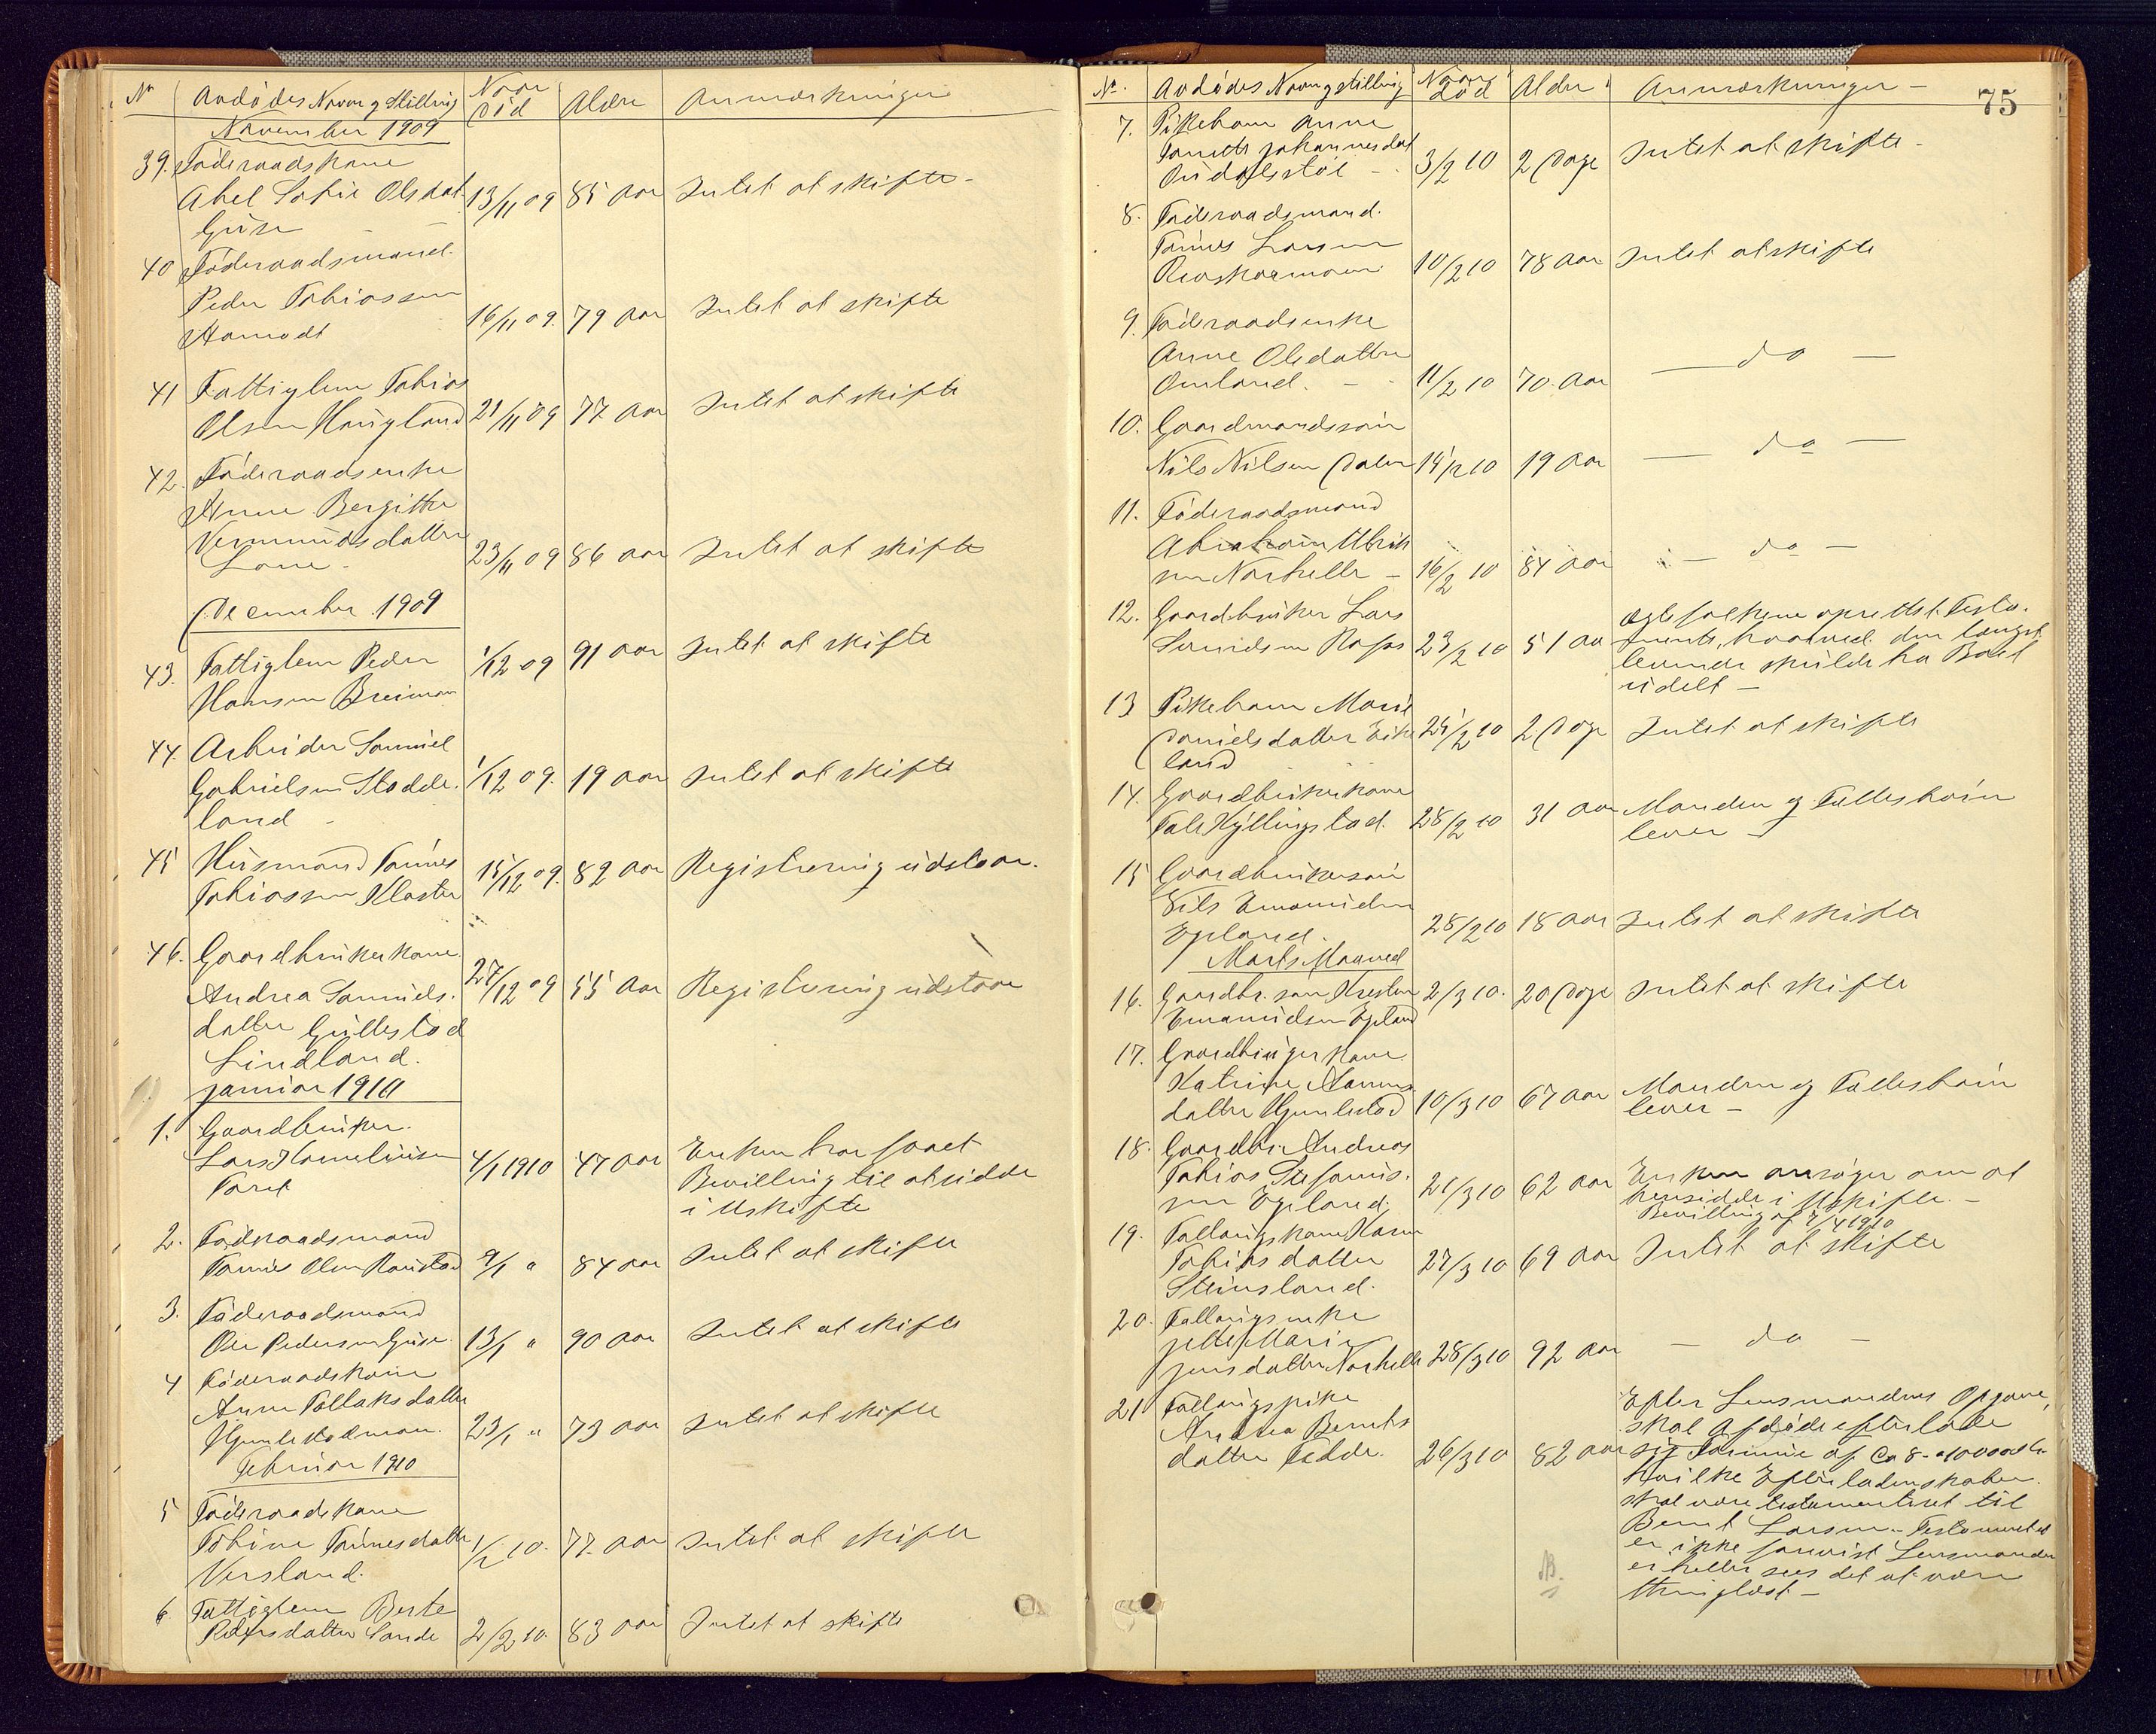 No Avdødes Navn og Stilling Naar død Alder Anmærkninger
November 1909
39. Føderaadskone
Abel Sofie Olsdat 13/11 09 85 aar Intet at skifte -
Guse
40 Føderaadsmand.
Peder Tobiassen 16/11 09. 79 aar Intet at skifte
Hamodt
41 Fattiglem Tobias
Olsen Haugland 21/11 09 77 aar Intet at skifte
42. Føderaadsenke
Anne Bergitte
Vermundsdatter 23/11 09 86 aar Intet at skifte
Lone -
December 1909
43. Fattiglem Peder 1/12 09 91 aar Intet at skifte
Hansen Breimon
44. Arbeider Samuel
Gabrielsen Stodde- 1/12 09. 19 aar Intet at skifte
land -
45 Husmand Tønnes 15/12 09. 82 aar Registrering udstaar.
Tobiassen Kloster
46. Gaardbrukerkone
Andrea Samuels- 27/12 09 55 aar Registrering udstaar
datter Gullestad
Lindland.
Januar 1910
1. Gaardbruker. Enken har faaet
Lars Kornelius 4/1 1910 47 aar Bevilling til at sidde
i Uskifte
2. Føderaadsmand
Tønnes Olsen 9/1 " 84 aar Intet at skifte
3. Føderaadsmand
Ole Pedersen Guse. 13/1 " 90 aar Intet at skifte
4 Føderaadskone
Anne Tollaksdatter 23/1 " 73 aar Intet at skifte
Februar 1910
5 Føderaadskone
Tobine Tønnesdatter 10. 77 aar Intet at skifte
Versland.
6 Fattiglem Berte
Pedersdatter Sande 2/2 10. 83 aar Intet at skifte
75
No. Avdødes Navn og stilling Naar død Alder Anmærkninger -
7. Pikebarn Anne
Tomette Johannesdat 3/2 10 2 Dage Intet at skifte -
8. Føderaadsmand.
Tønnes Larsen 10/2 10 78 aar Intet at skifte
9. Føderaadsenke
Anne Olsdatter — do —
Omland. - 11/2 10 70 aar
10. Gaardmandssøn
Nils Nilsen Dalen 14/2 10 19 aar — do —
11. Føderaadsmand
Abraham Ulrik
sen Norhelle - 16/2 10 84 aar — do —
12. Gaardbruker Lars Egtefolkene oprettet Testa-
Rafos 23/2 10 51 aar mente, hvorved den længst
levende skulde ha Boet
udelt —
13 Pikebarn Marie
Danielsdatter Eike 24/2 10 2 Dage Intet at skifte
land
14. Gaardbrukerkone
Tale Kyllingstad. 28/2 10 31 aar Manden og Fællesbørn
lever —
15 Gaardbrukersøn
Nils Emanuelsen 28/2 10 18 aar Intet at skifte
Egeland.
Marts Maaned
16. Gaardbr. søn Kresten 2/3 10. 20 Dage Intet at skifte
Emanuelsen Egeland
17. Gaardbrugerkone
Katrine 10/3 10 67 aar Manden og Fællesbørn
datter lever —
18. Gaardbr. Andreas
Tobias Stefanus- 21/3 10 62 aar Enken ansøger om at
sen Egeland. hensidde i Uskifte. —
Bevilling af 7/4 1910
19. Fattigskone Karen
Tobiasdatter 27/3 10 69 aar Intet at skifte
Steinsland.
20. enke
Jette Marie — do —
Jensdatter Norhelle 28/3 10 92 aar
21 pike Efter Lensmandens Opgave,
Andrea Bernts skal Afdøde efterlade
datter Fedde. 26/3 10 82 aar sig Formue af Ca 8- a 10000 Kr
hvilke Efterladenskaber
skal være testamenteret til
Bernt Larsen. Testamentet
er ikke forevist Lensmanden
ei heller sees det at være
thinglæst —